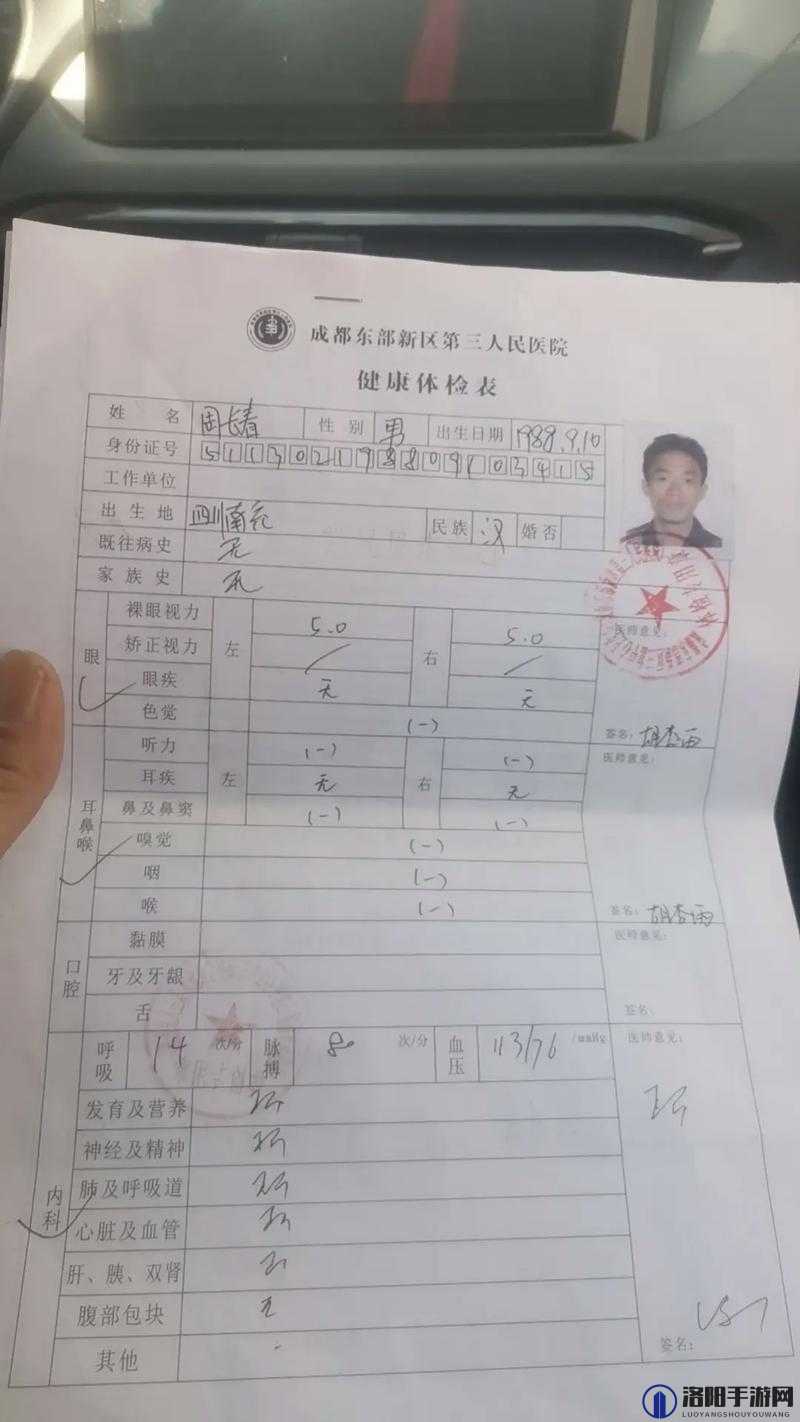 成都东部新区第三人民医院
健康体检表
姓名 周长春 性别 男 出生日期 1988.9.10
身份证号
工作单位
出生地 四川南充 民族 汉 婚否
既往病史 无
家族史 无
眼 裸眼视力 左 5.0 右 5.0 医师意见:
矫正视力 / /
眼疾 无 无
色觉 (-) 签名: 胡杏雨
耳鼻喉 听力 左 (-) 右 (-) 医师意见:
耳疾 无 无
鼻及鼻窦 (-) (-)
嗅觉 (-)
咽 (-)
喉 (-) 签名: 胡杏雨
口腔 黏膜 医师意见:
牙及牙龈
舌 签名:
内科 呼吸 14 次/分 脉搏 80 次/分 血压 113/76 /mmHg 医师意见:
发育及营养
神经及精神
肺及呼吸道
心脏及血管
肝、胰、双肾
腹部包块 无
其他 - 签名:
洛阳手游网
LUOYANGSHOUYOUWANG